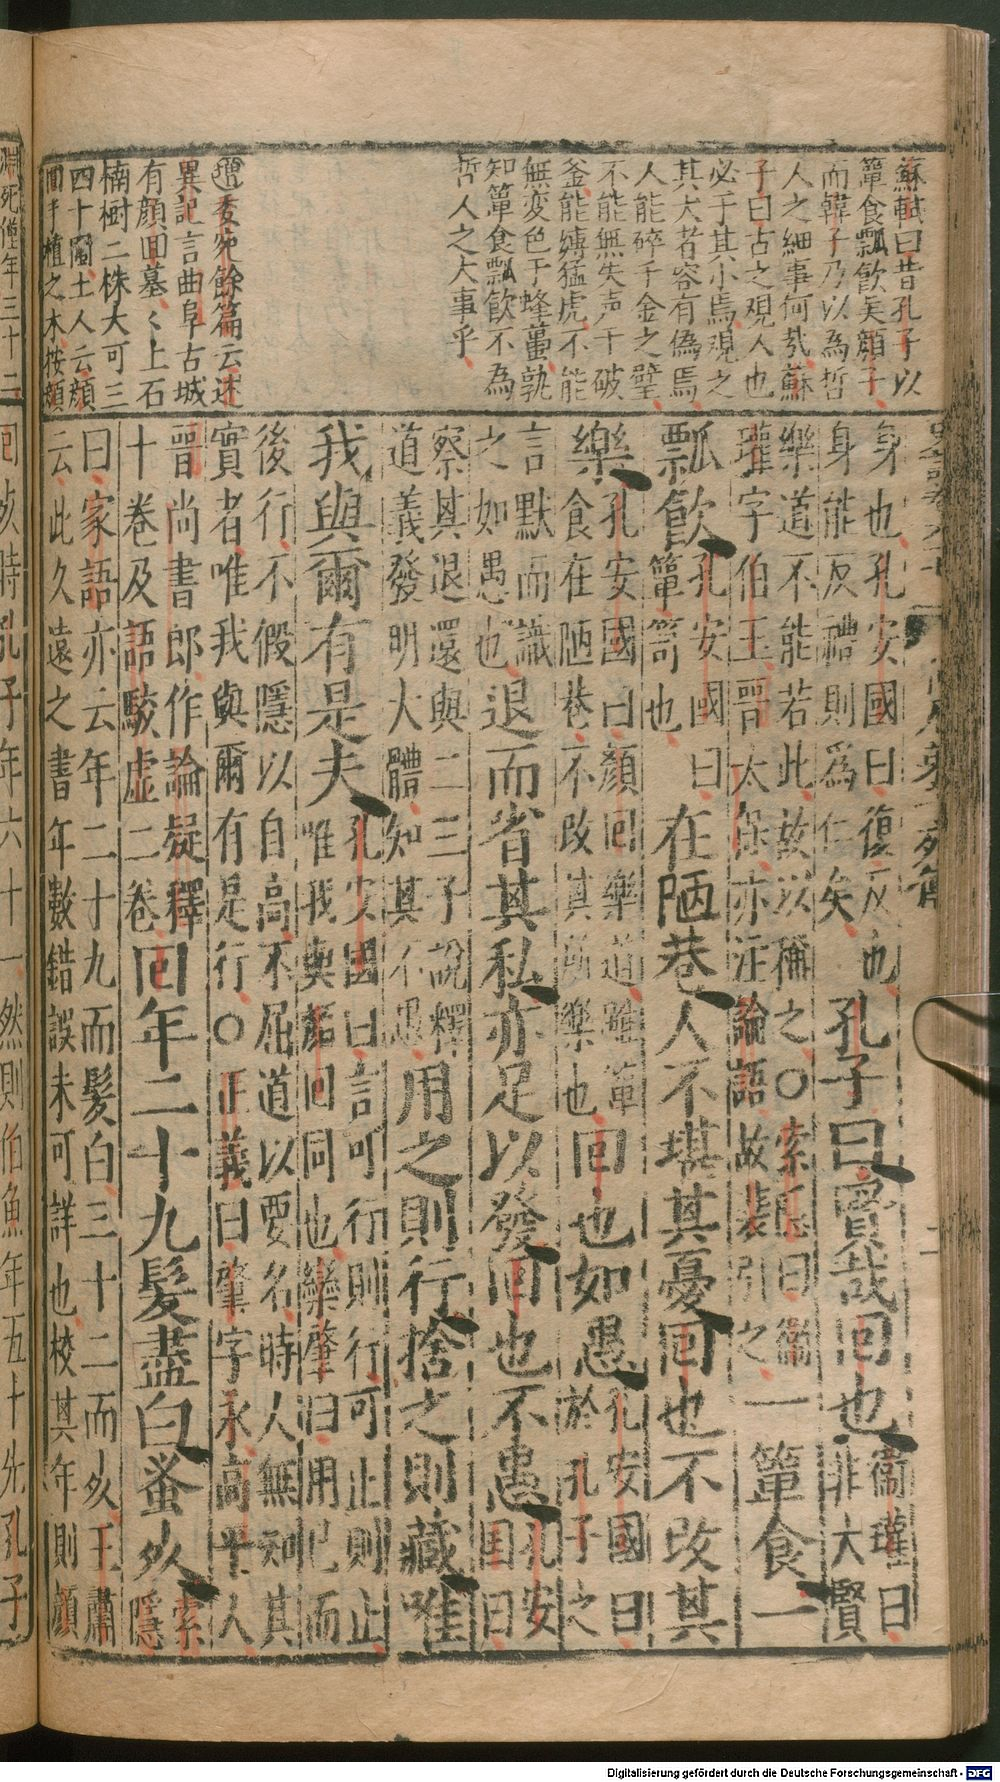 蘇軾曰昔孔子以
簞食瓢飲矣顔子
而韓子乃以為哲
人之細事何哉蘇
子曰古之观人也
必于其小焉观之
其大者容有偽焉
人能碎千金之璧
不能無失声于破
釜能搏猛虎不能
無变色于蜂蠆孰
知簞食瓢飲不為
哲人之大事乎
委宛餘篇云述
異記言曲阜古城
有顔回墓〻上石
楠樹二株大可三
四十圍土人云顔
回手植之木按顔
身也孔安國曰復反也
身能反禮則爲仁矣
孔子曰賢哉回也
衞瓘曰
非大賢
樂道不能若此故以稱之○索隱曰衞
瓘字伯玉晋太保亦注論語故裴引之
一簞食一
瓢飲
孔安國曰
簞笥也
在陋巷人不堪其憂回也不改其
樂
孔安國曰顏回樂道雖簞
食在陋巷不改其所樂也
回也如愚
孔安國曰
於孔子之
言默而識
之如愚也
退而省其私亦足以發回也不愚
孔安
国曰
察其退還與二三子說釋
道義發明大體知其不愚
用之則行捨之則藏唯
我與爾有是夫
孔安國曰言可行則行可止則止
唯我與顏回同也欒肇曰用己而
後行不假隱以自高不屈道以要名時人無知其
實者唯我與爾有是行○正義曰肇字永高平人
晋尚書郎作論疑釋
十卷及語駮虚二卷
回年二十九髮盡白蚤死
索
隱
曰家語亦云年二十九而髮白三十二而死王肅
云此久遠之書年數錯誤未可詳也校其年則顔
回死時孔子年六十一然則伯魚年五十先孔子
Digitalisierung gefördert durch die Deutsche Forschungsgemeinschaft - DFG